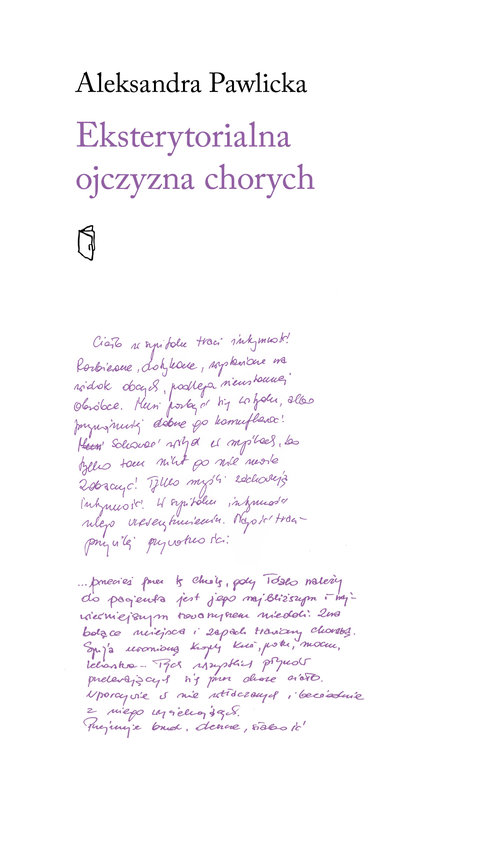 Aleksandra Pawlicka
Eksterytorialna
ojczyzna chorych
Ciało w szpitalu traci intymność!
Rozbierane, dotykane, wystawione na
widok obcych, podlega nieustannej
obróbce. Musi pozbyć się wstydu, albo
przynajmniej dobrze go kamuflować!
schować wstyd w myślach, bo
tylko tam nikt go nie może
zobaczyć! Tylko myśli zachowują
intymność. W szpitalu intymność
ulega Nagość traci
przywilej prywatności.
...przecież przez tę chwilę, gdy łóżko należy
do pacjenta jest jego najbliższym i naj-
wierniejszym towarzyszem niedoli. Zna
bolące miejsca i zapach trawiony chorobą.
Spija uronione krople krwi, potu, moczu,
lekarstw - Tych wszystkich płynów
przelewających się przez chore ciało.
Uporczywie w nie wtłaczanych i bezładnie
z niego wyciekających.
Przyjmuje brud, słabość